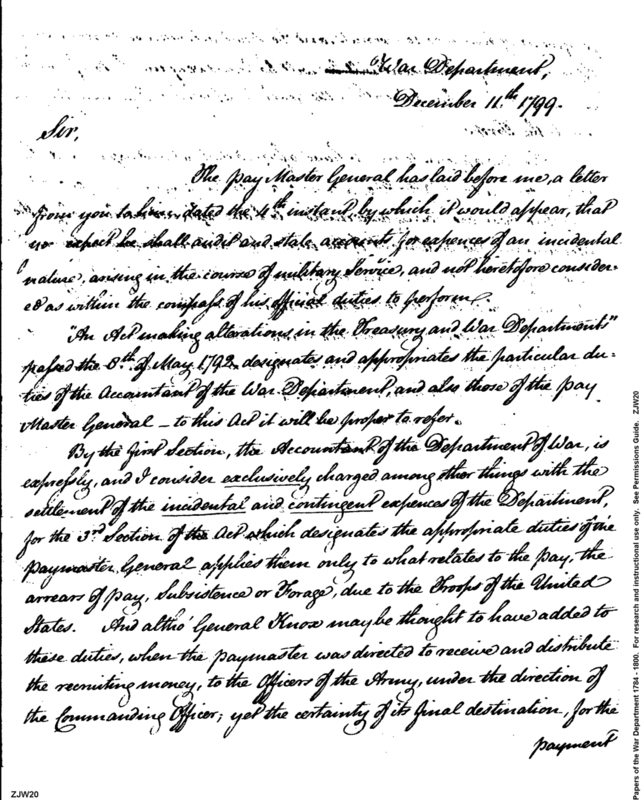 War Department,
December 11th 1799.
Sir,
The pay Master General has laid before me, a letter
from you to him, dated the 4th instant, by which it would appear, that
expect he shall audit and state accounts for expences of an incidental
nature, arising in the course of military Service, and not heretofore consider-
ed as within the compass of his official duties to perform.
"An Act making alterations in the Treasury and War Departments"
passed the 8th of May 1792 designates and appropriates the particular du-
ties of the Accountant of the War Department, and also those of the pay
Master General – to this Act it will be proper to refer.
By the first Section, the Accountant of the Department of War, is
expressly, and I consider exclusively charged among other things with the
settlement of the incidental and contingent expences of the Department,
for the 3rd Section of the Act which designates the appropriate duties of the
paymaster General applies them only to what relates to the pay, the
arrears of pay, Subsistence or Forage, due to the Troops of the United
States. And altho' General Knox may be thought to have added to
these duties, when the paymaster was directed to receive and distribute
the recruiting money, to the Officers of the Army, under the direction of
the Commanding Officer; yet the certainty of its final destination, for the
payment
ZJW20
Papers of the War Department 1784 - 1800. For research and instructional use only. See Permissions Guide. ZJW20